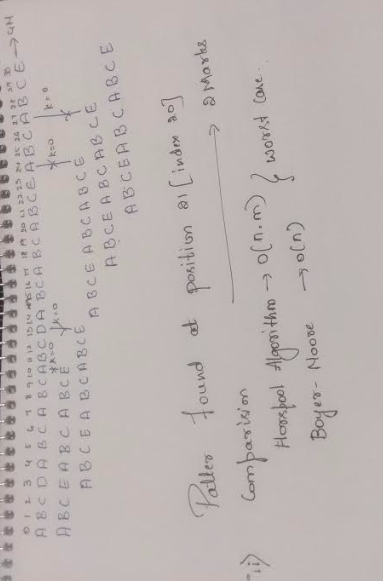 0 1 2 3 4 5 6 7 8 9 10 11 12 13 14 15 16 17 18 19 20 21 22 23 24 25 26 27 28 29 30
A B C D A B C A B C A B C D A B C A B C A B C E A B C A B C E → 4M
A B C E A B C A B C E k=0 k=0 k=0 k=0
A B C E A B C A B C E
A B C E A B C A B C E
A B C E A B C A B C E
A B C E A B C A B C E
Patter found at position 21 [index 20]
→ 2 Marks
ii) Comparision
Horspool Algorithm → O(n.m) } worst case..
Boyer-Moore → O(n)